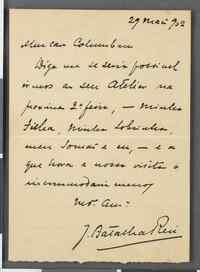 29 Maio 902
Meu caro Columbano
Diga me se será possivel
irmos ao seu Atelier na
proxima 2ª feira, — minha
Filha, minha sobrinha,
meu irmão e eu, — e a
que hora a nossa visita o
incommodará menos
Mto Amº
J. Batalha Reis